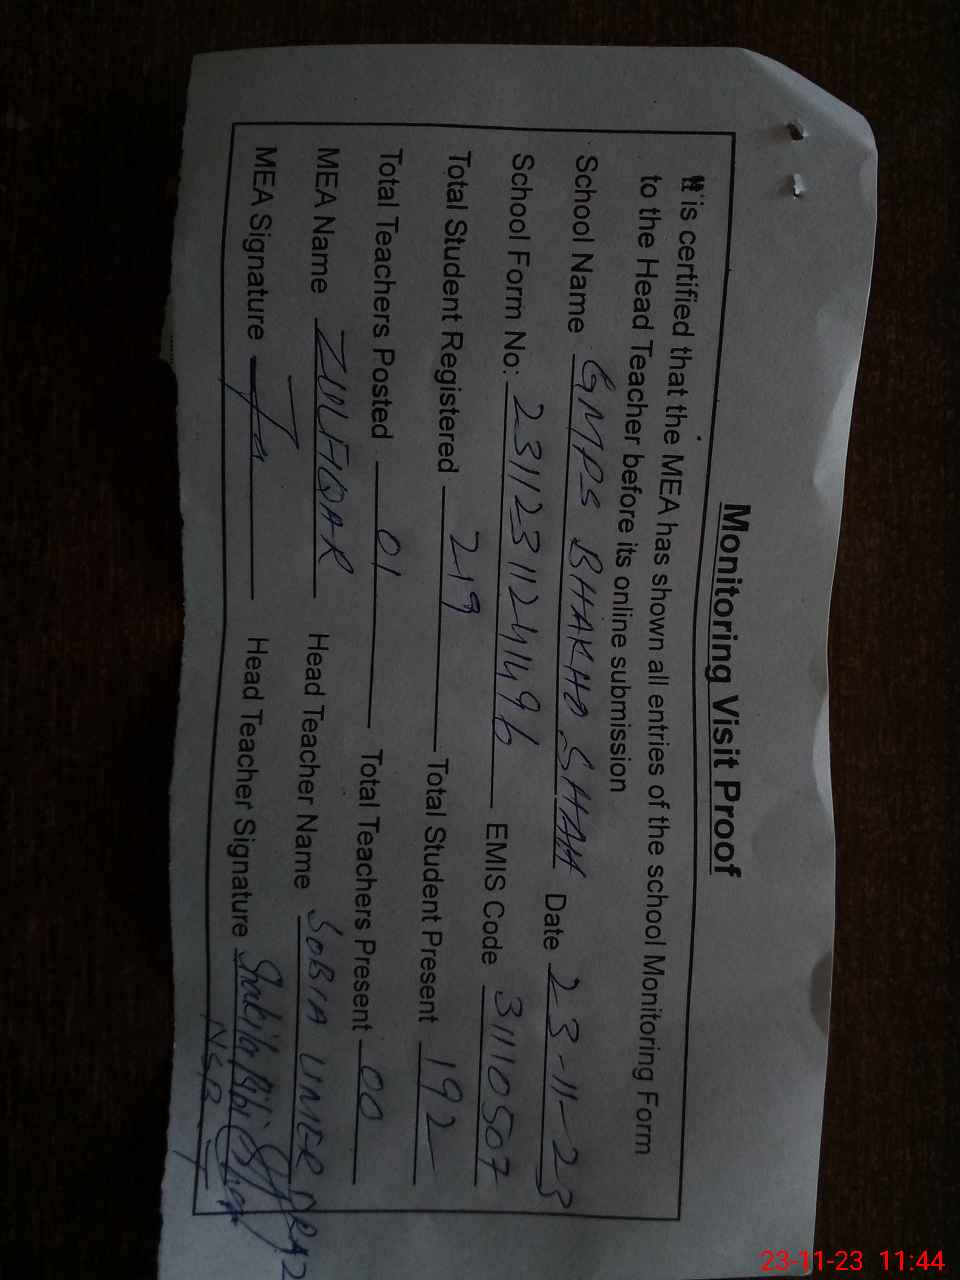 Monitoring Visit Proof
It is certified that the MEA has shown all entries of the school Monitoring Form
to the Head Teacher before its online submission
School Name GMPS BHAKHO SHAH Date 23-11-23
School Form No: 231123 11241496 EMIS Code 31110507
Total Student Registered 219 Total Student Present 192
Total Teachers Posted 01 Total Teachers Present 00
MEA Name ZULFIQAR Head Teacher Name SOBIA UMER
MEA Signature Head Teacher Signature Shakila Bibi
23-11-23 11:44